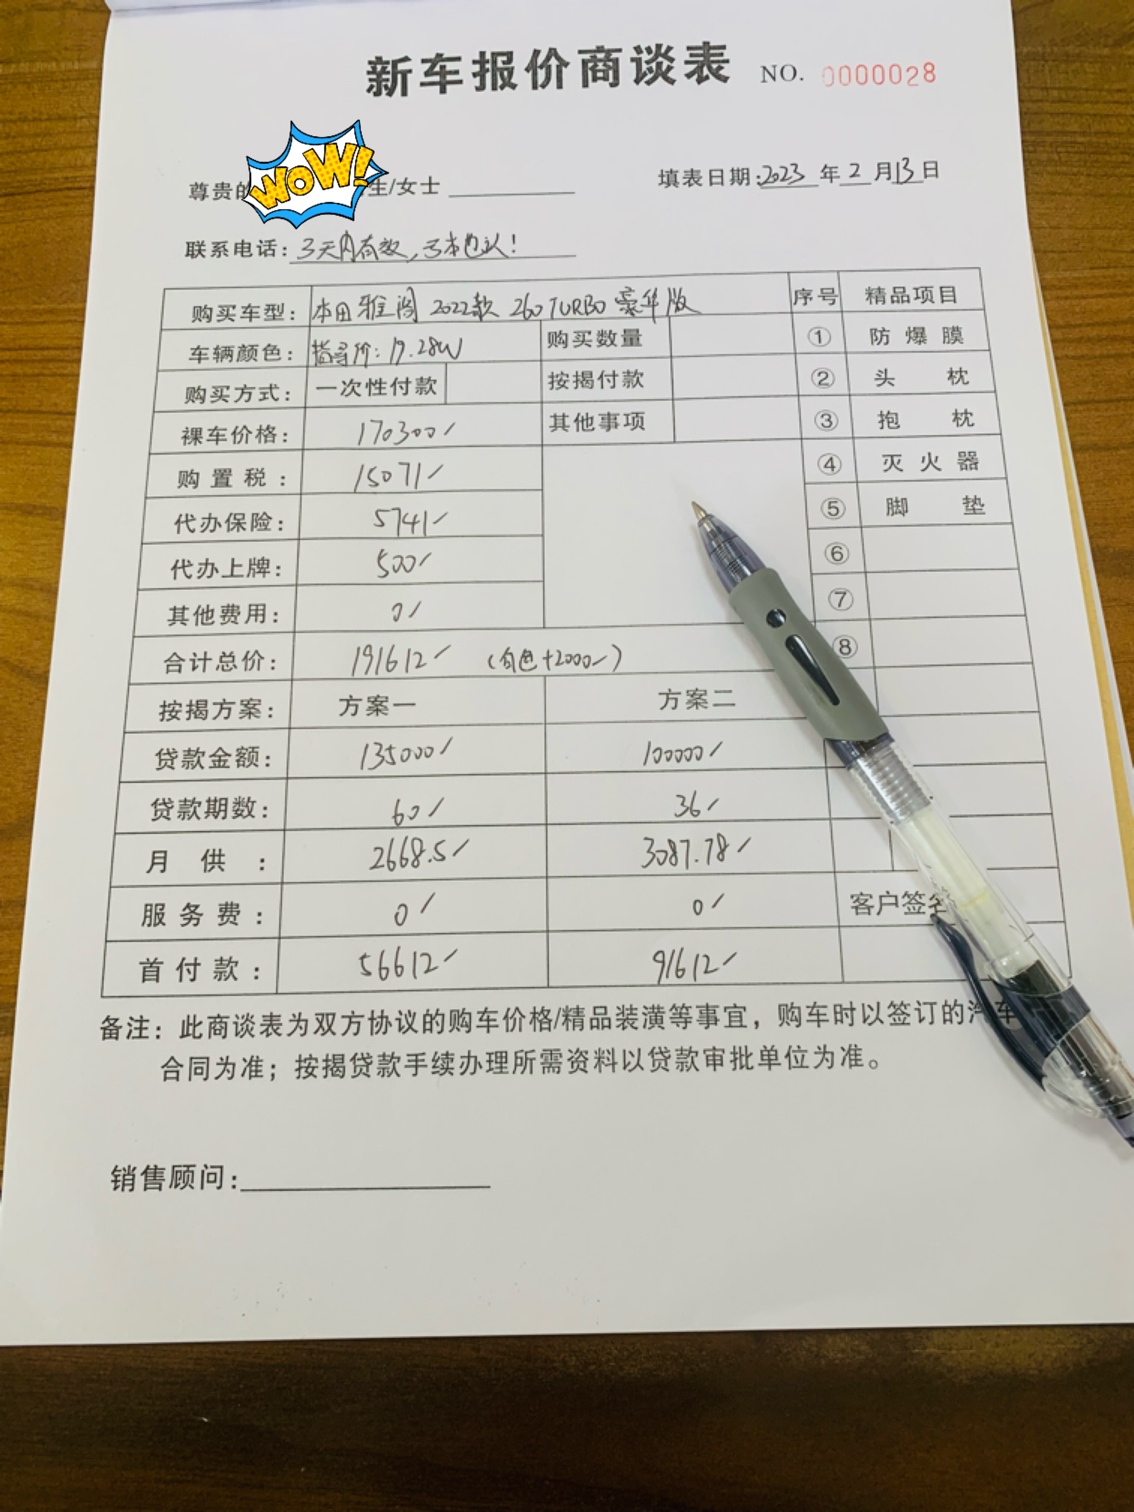 新车报价商谈表 NO. 0000028
WOW!
尊贵的 生/女士 填表日期:2023年2月13日
联系电话:3天内有效,亏本也认!
购买车型: 本田雅阁 2022款 260TURBO 豪华版 序号 精品项目
车辆颜色: 指导价:19.28W 购买数量 ① 防爆膜
购买方式: 一次性付款 按揭付款 ② 头枕
裸车价格: 170300/ 其他事项 ③ 抱枕
购置税: 15071/ ④ 灭火器
代办保险: 5741/ ⑤ 脚垫
代办上牌: 500/ ⑥
其他费用: 0/ ⑦
合计总价: 191612/ (白色+2000/) ⑧
按揭方案: 方案一 方案二
贷款金额: 135000/ 100000/
贷款期数: 60/ 36/
月供: 2668.5/ 3087.78/
服务费: 0/ 0/ 客户签名
首付款: 56612/ 91612/
备注:此商谈表为双方协议的购车价格/精品装潢等事宜,购车时以签订的汽车
合同为准;按揭贷款手续办理所需资料以贷款审批单位为准。
销售顾问: